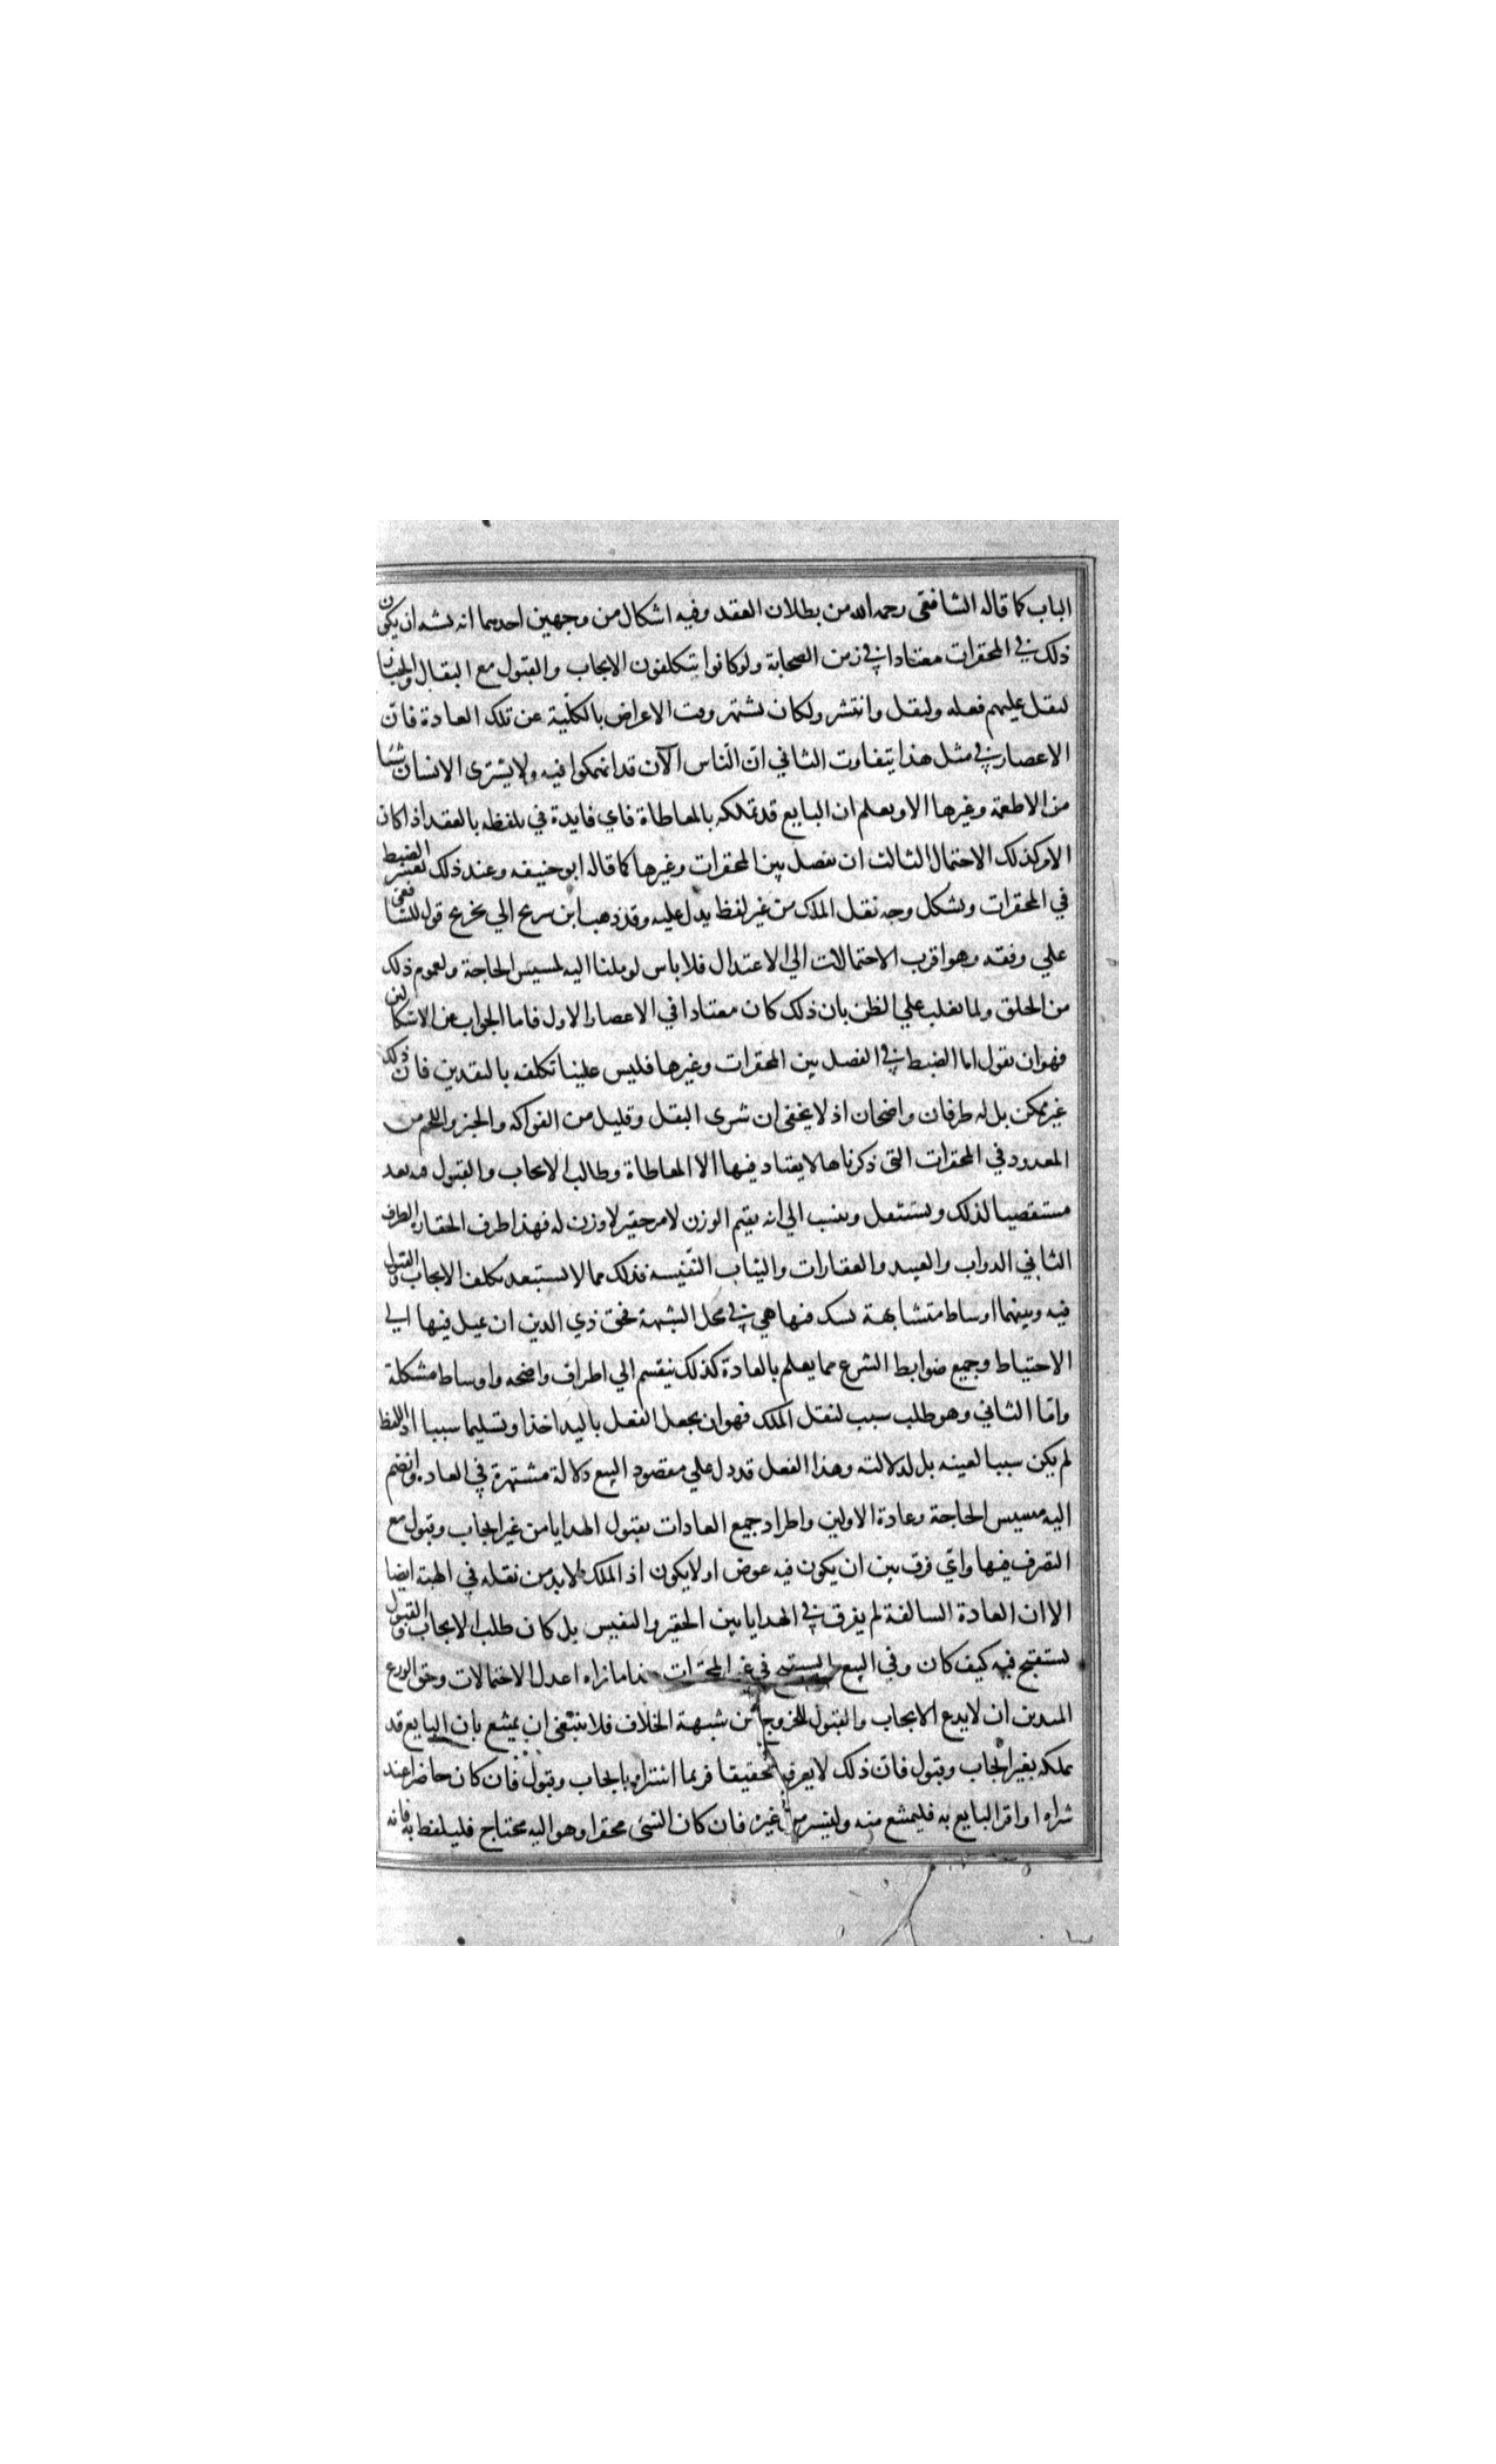 الباب كما قاله الشافعي رحمه الله من بطلان العقد وفيه اشكال من وجهين احدهما انه يشبه ان يكون
ذلك في المحقرات معتادا في زمن الصحابة ولو كانوا يتكلفون الايجاب والقبول مع البقال والخباز
لثقل عليهم فعله ولنقل وانتشر ولكان يشتهر وقت الاعراض بالكلية عن تلك العادة فان
الاعصار في مثل هذا يتفاوت الثاني ان الناس الآن قد انهمكوا فيه ولا يشتري الانسان شيئا
من الاطعمة وغيرها الا ويعلم ان البايع قد تملكه بالمعاطاة فاي فايدة في تلفظه بالعقد اذا كان
الامر كذلك الاحتمال الثالث ان يفصل بين المحقرات وغيرها كما قاله ابو حنيفه وعند ذلك يعسر الضبط
في المحقرات ويشكل وجه نقل الملك من غير لفظ يدل عليه وقد ذهب ابن سريج الي تخريج قول للشافعي
علي وفقه وهو اقرب الاحتمالات الي الاعتدال فلا باس لو ملنا اليه لمسيس الحاجة ولعموم ذلك
من الخلق ولما يغلب علي الظن بان ذلك كان معتادا في الاعصار الاول فاما الجواب عن الاشكالين
فهو ان نقول اما الضبط في الفصل بين المحقرات وغيرها فليس علينا تكلفه بالتقدير فان ذلك
غير ممكن بل له طرفان واضحان اذ لا يخفى ان شرى البقل وقليل من الفواكه والخبز واللحم من
المعدود في المحقرات التي ذكرناها لا يعتاد فيها الا المعاطاة وطالب الايجاب والقبول فيه يعد
مستقصيا لذلك ويستثقل وينسب الي انه يقيم الوزن لامر حقير لا وزن له فهذا طرف الحقارة الطرف
الثاني الدواب والعبيد والعقارات والثياب النفيسه فذلك مما لا يستبعد تكلف الايجاب والقبول
فيه وبينهما اوساط متشابهة يشك فيها هي في محل الشبهة فحق ذي الدين ان يميل فيها الي
الاحتياط وجميع ضوابط الشرع مما يعلم بالعادة كذلك ينقسم الي اطراف واضحه واوساط مشكلة
واما الثاني وهو طلب سبب لنقل الملك فهو ان يجعل الفعل باليد اخذا وتسليما سببا اذ اللفظ
لم يكن سببا لعينه بل لدلالته وهذا الفعل قد دل علي مقصود البيع دلالة مشتهرة في العاده وانضم
اليه مسيس الحاجة وعادة الاولين واطراد جميع العادات بقبول الهدايا من غير ايجاب وقبول مع
التصرف فيها واي فرق بين ان يكون فيه عوض او لا يكون اذ الملك لا بد من نقله في الهبة ايضا
الا ان العادة السالفة لم يفرق في الهدايا بين الحقير والنفيس بل كان طلب الايجاب والقبول
يستقبح فيه كيف كان وفي البيع لم يستقبح في غير المحقرات هذا ما نراه اعدل الاحتمالات وحق الورع
المتدين ان لا يدع الايجاب والقبول للخروج عن شبهة الخلاف فلا ينبغي ان يمتنع بان البايع قد
تملكه بغير ايجاب وقبول فان ذلك لا يعرف تحقيقا فربما اشتراه بايجاب وقبول فان كان حاضرا عند
شراه او اقر البايع به فليمتنع منه وليشتر من غيره فان كان الشئ محقرا وهو اليه محتاج فليلفظ به فانه